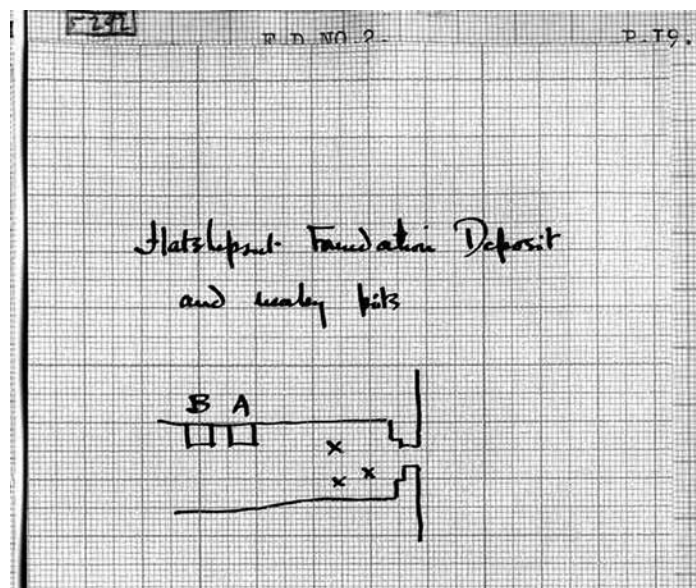 F.D.NO.2.
Hatshepsut Foundation Deposit
and nearby pits
B A